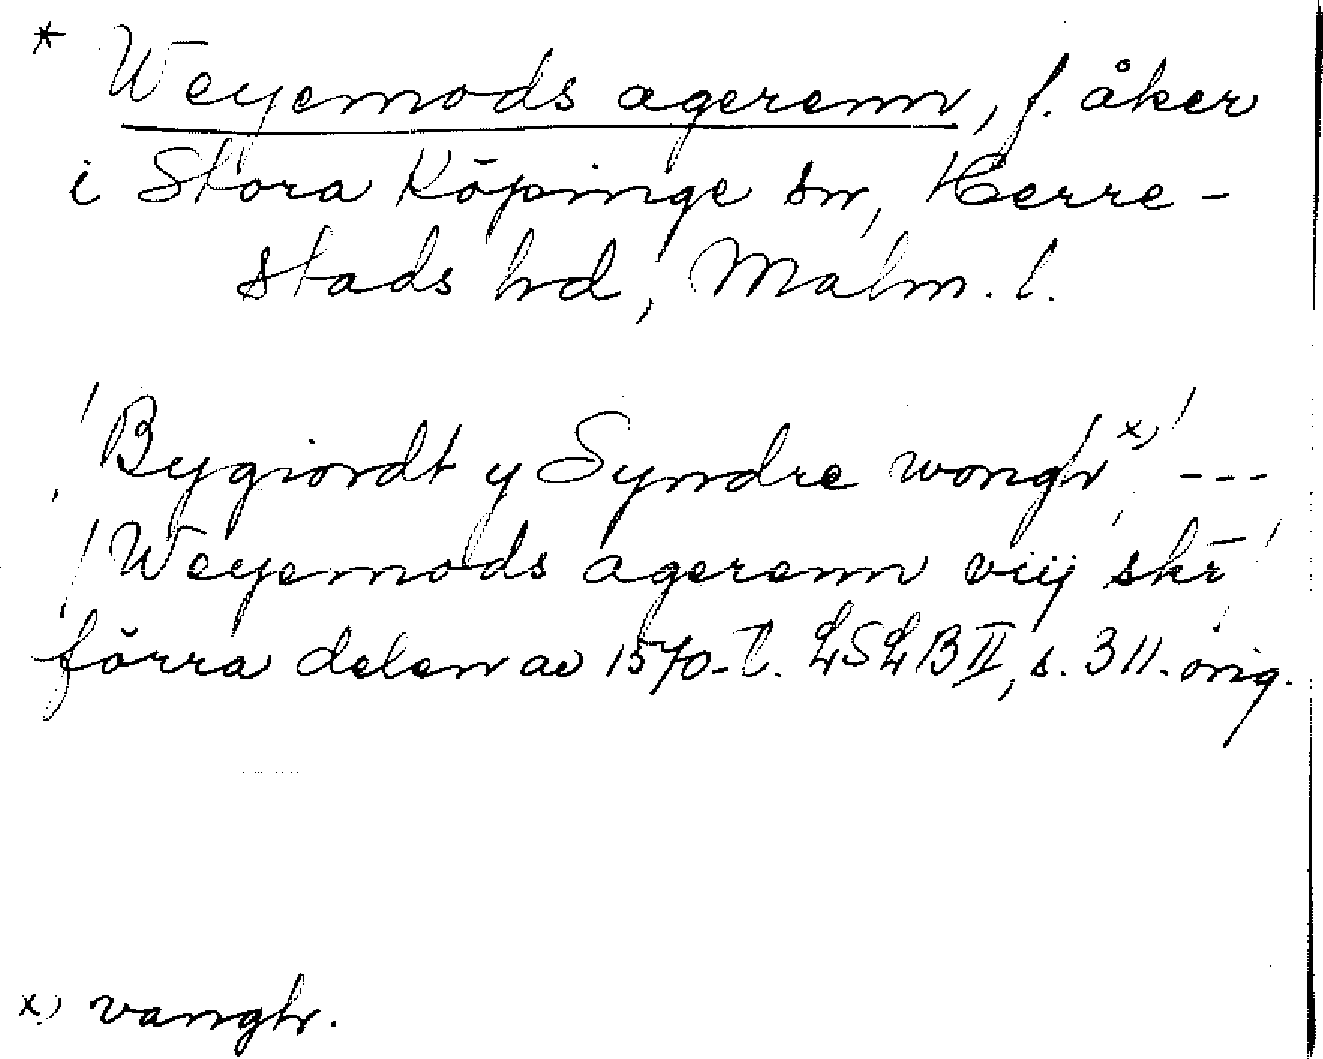 * Weyemods agerenn, f. åker
i Stora Köpinge sn, Herre-
stads hd, Malm. l.
'Bygiordt y Syndre wongh x)' ---
'Weyemods agerenn viij skr̄'
förra delen av 1570-t. LSLB II, s. 311. orig.
x) vangh.